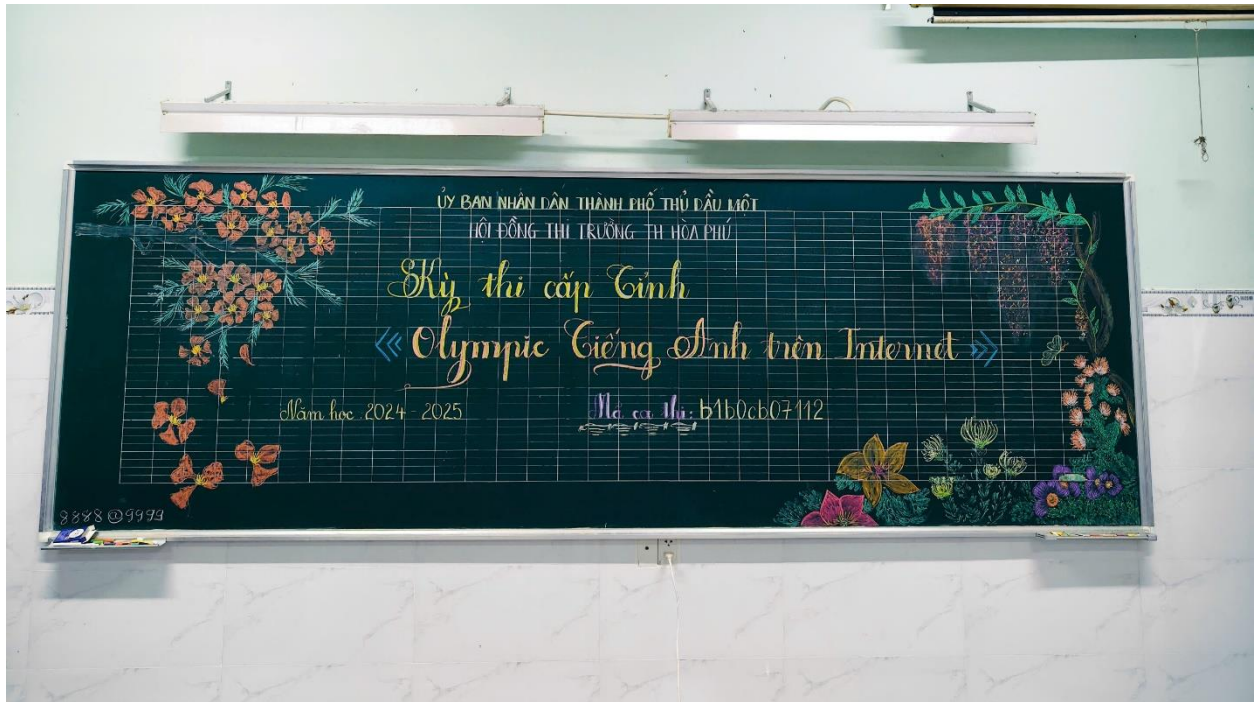 ỦY BAN NHÂN DÂN THÀNH PHỐ THỦ DẦU MỘT
HỘI ĐỒNG THI TRƯỜNG TH HÒA PHÚ
Kỳ thi cấp Tỉnh
« Olympic Tiếng Anh trên Internet »
Năm học 2024 - 2025
Mã ca thi: b1b0cb07112
8888@9999